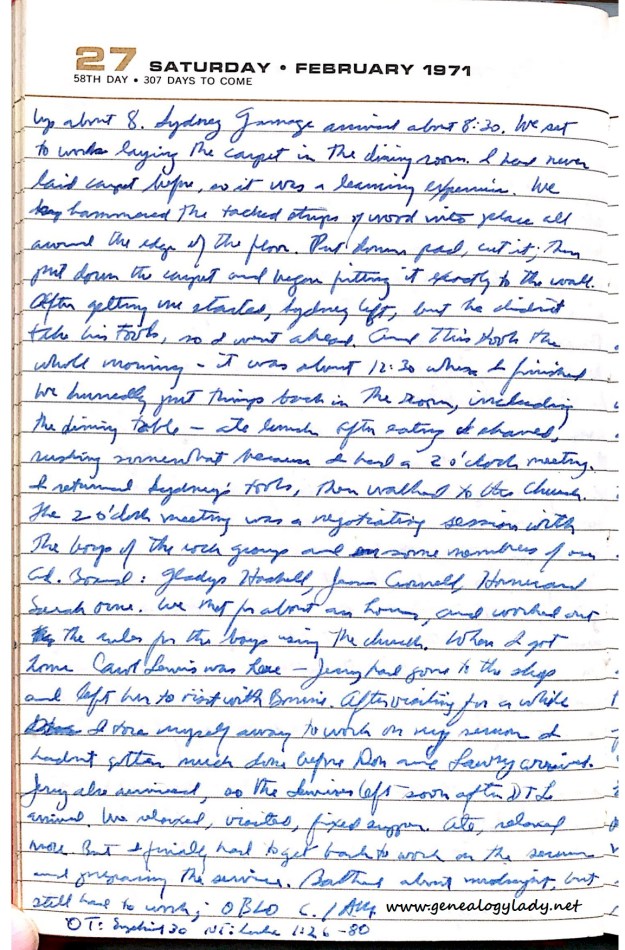 27 SATURDAY • FEBRUARY 1971
58TH DAY • 307 DAYS TO COME
Up about 8. Sydney Gamage arrived about 8:30. We set
to work laying the carpet in the dining room. I had never
laid carpet before, so it was a learning experience. We
hammered the tacked strips of wood into place all
around the edge of the floor. Put down pad, cut it; then
put down the carpet and began fitting it exactly to the wall.
After getting me started, Sydney left, but he didn't
take his tools, so I went ahead. And this took the
whole morning – it was about 12:30 when I finished
We hurriedly put things back in the room, including
the dining table – ate lunch. After eating I shaved,
rushing somewhat because I had a 2 o'clock meeting.
I returned Sydney's tools, then walked to the church.
The 2 o'clock meeting was a negotiating session with
the boys of the rock groups and some members of our
Ad. Board: Gladys Haskell, Connell, Homer and
Sarah Orne. We met for about an hour, and worked out
the rules for the boys using the church. When I got
home Carol Lewis was here – Jerry had gone to the shop
and left her to visit with Bonnie. After visiting for a while
I tore myself away to work on my sermon I
hadn't gotten much done before Don and Lawry arrived.
Jerry also arrived, so the Lewises left soon after D + L
arrived. We relaxed, visited, fixed supper. Ate, relaxed
more. But I finally had to get back to work on the sermon
and preparing the service. Bathed about midnight, but
still had to work; OBLO
OT: Ezekiel 30 NT: Luke 1:26-80
www.genealogylady.net